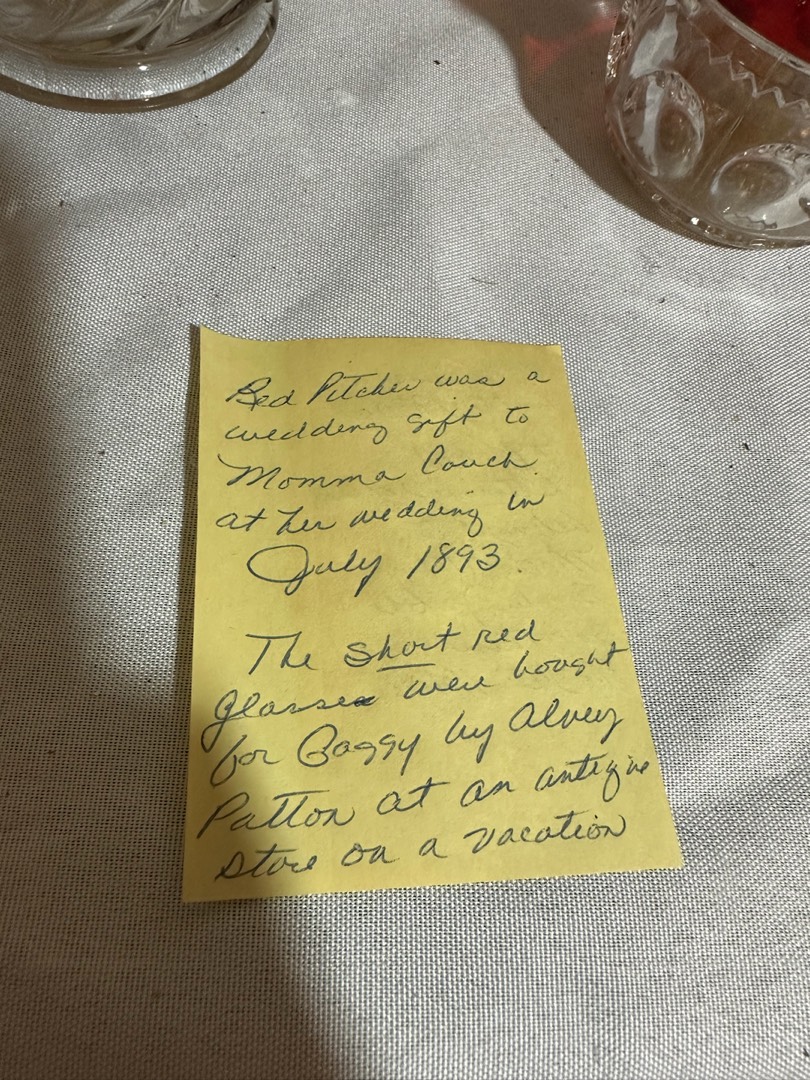 Red Pitcher was a
wedding gift to
Momma Couch
at her wedding in
July 1893.
The short red
glasses were bought
for Gaggy by Alvey
Patton at an antique
store on a vacation